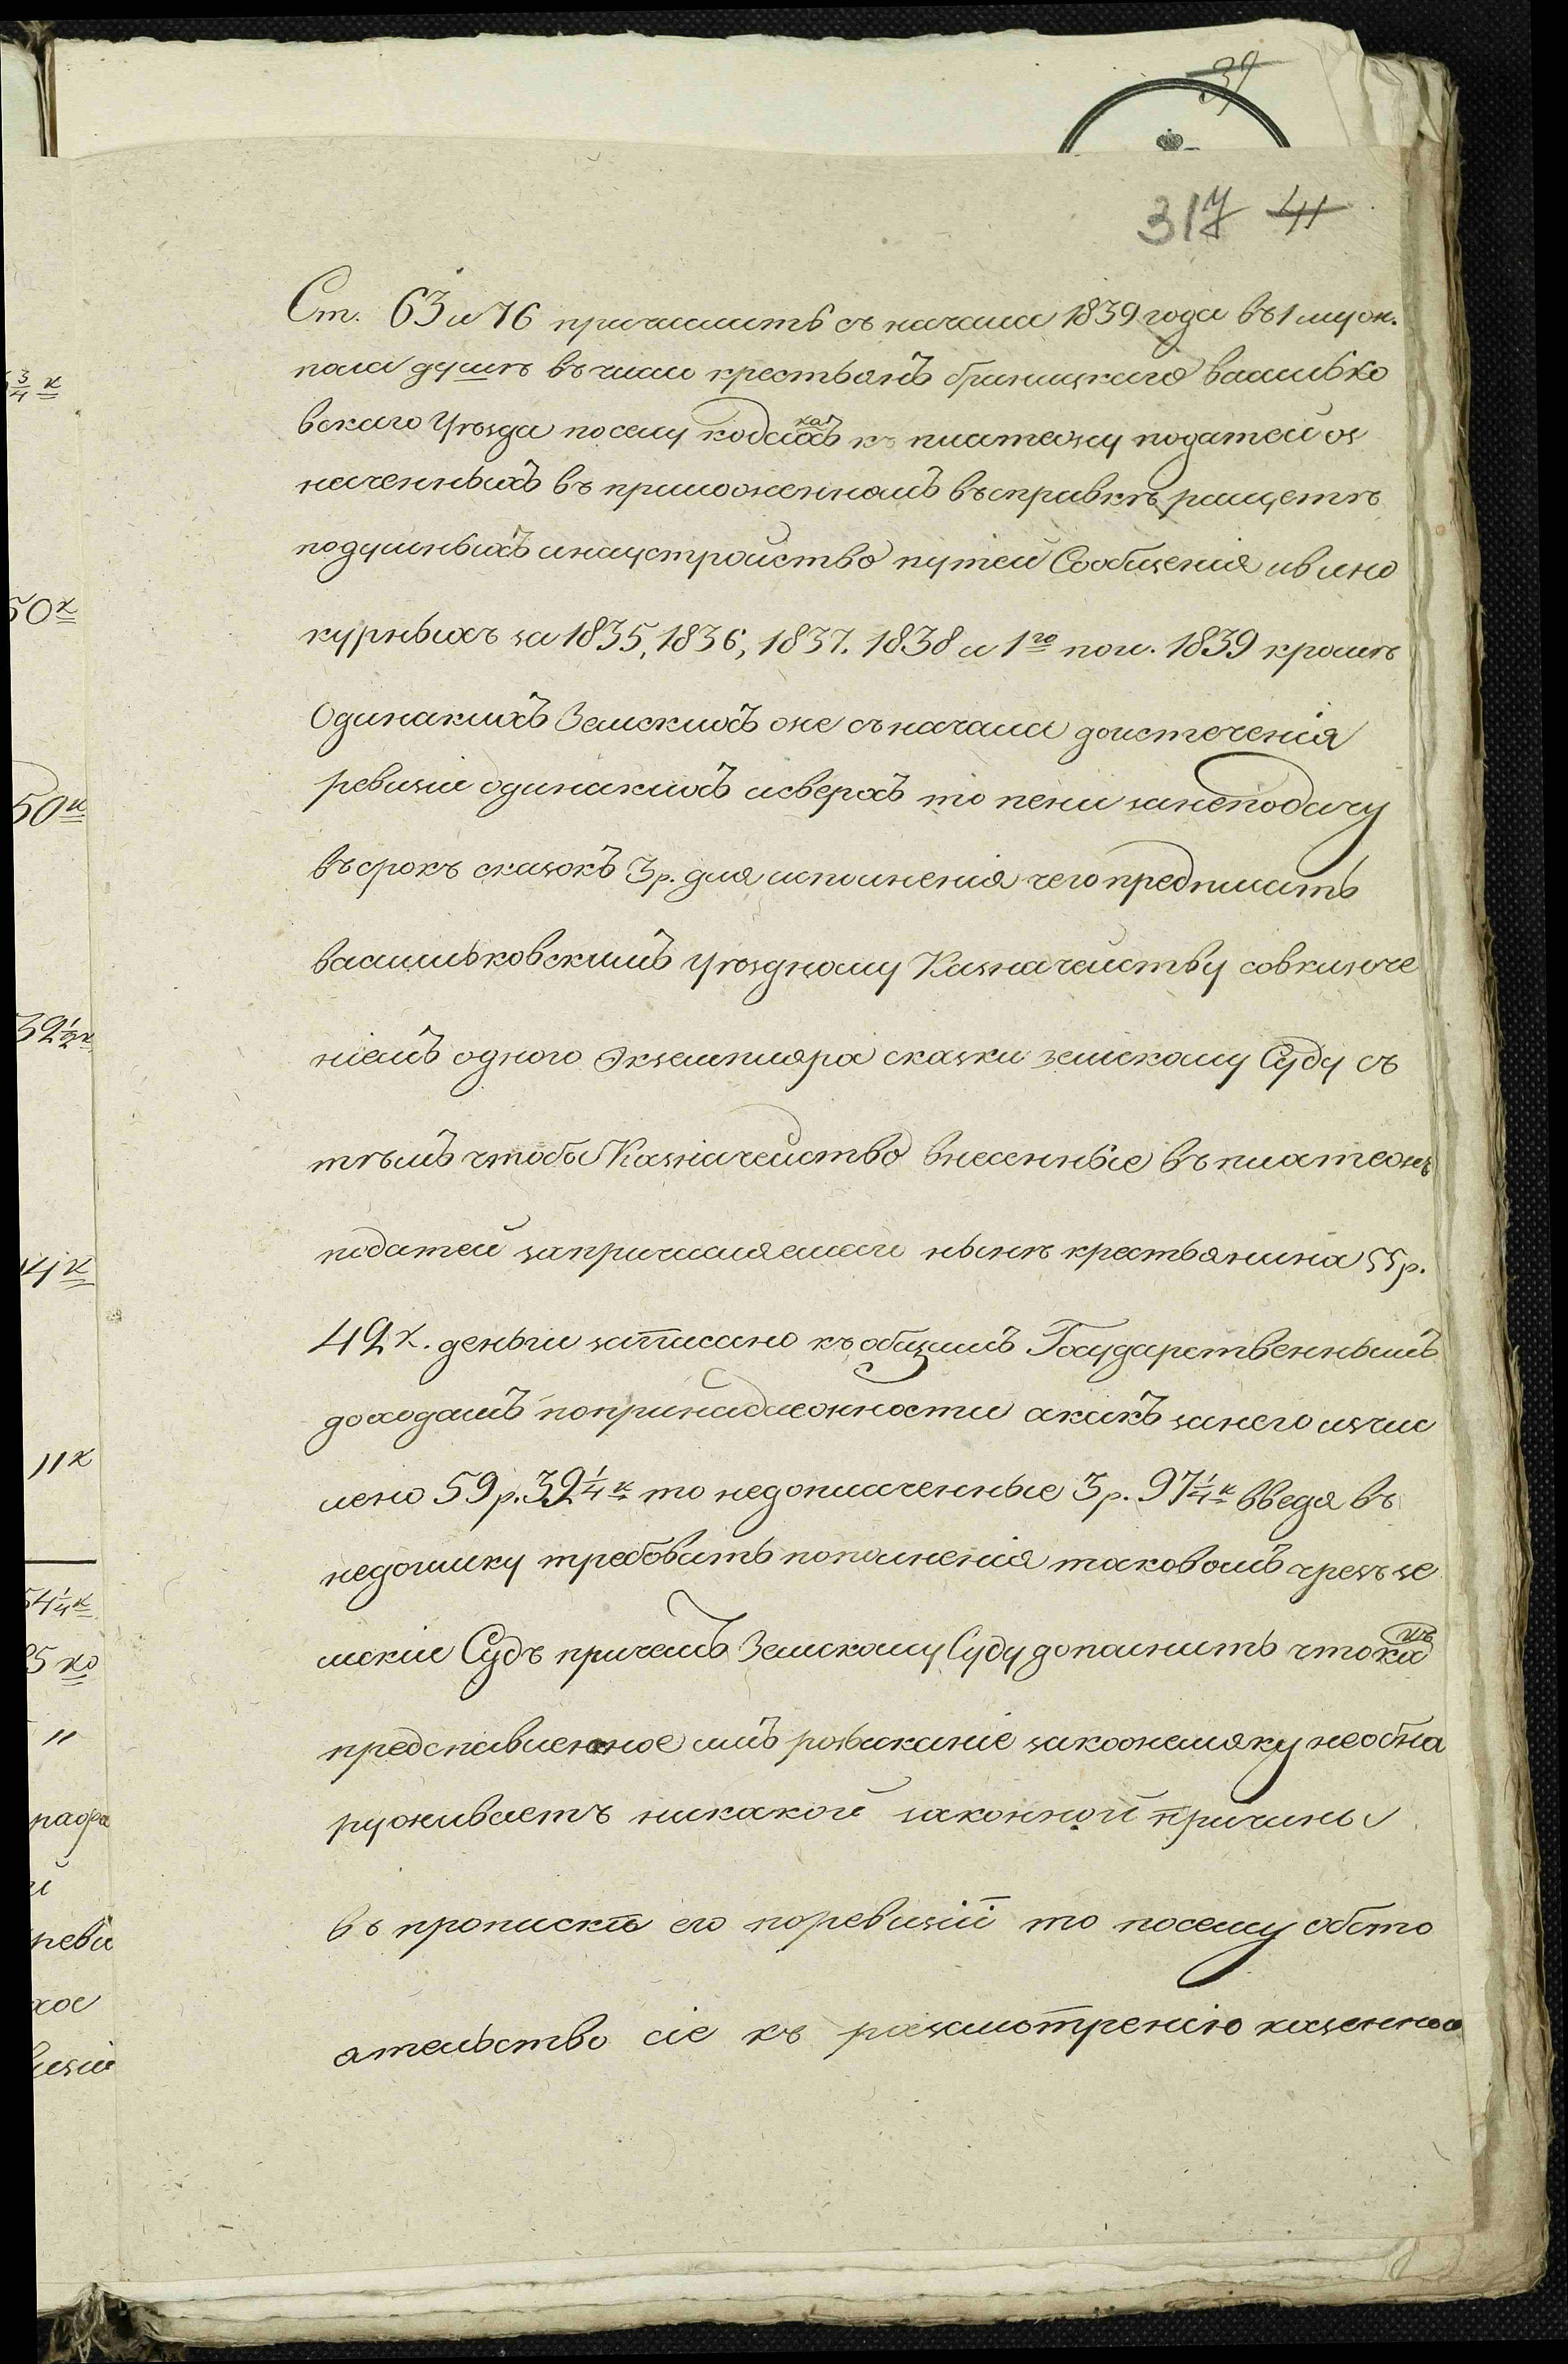 37
317 41
Ст. 63 и 76 причислить съ начала 1839 года въ 1 муж.
пола душѣ въ число крестьянъ василько
вскаго уѣзда по селу къ платежу податей оз
наченныхъ въ приложенномъ въ справкѣ расщетѣ
подушныхъ и на устройство путей Сообщенія и вино
курныхъ за 1835, 1836, 1837. 1838 и 1го пол. 1839 кромѣ
Одинакихъ Земскихъ же съ начала до истеченія
ревизіи одинакихъ и сверхъ то пени за неподачу
въ срокъ сказокъ 3 р. для исполненія чего предписать
васильковскимъ уѣздному Казначейству со включе
ніемъ одного Экземпляра сказки земскому Суду съ
тѣмъ чтобы Казначейство внесенные въ платежъ
податей за причисляемаго нынѣ крестьянина 55 р.
42 к. деньги записано къ общимъ Государственнымъ
доходамъ по принадлежности а какъ за него исчис
лено 59 р. 39 1/4 к то недоплаченные 3 р. 97 1/4 к введя въ
недоимку требовать пополненія таковомъ чрезъ зе
мскій Судъ причемъ Земскому Суду дополнить что ка
къ
представленное имъ розысканіе за кожемяку не обна
руживаетъ никакой законной причины
въ пропискѣ его по ревизіи то посему обсто
ятельство сіе къ разсмотренію казенной
3/4 к
50 к
50 к
32 1/2 к
41 к
11 к
54 1/4 к
25 ко
"